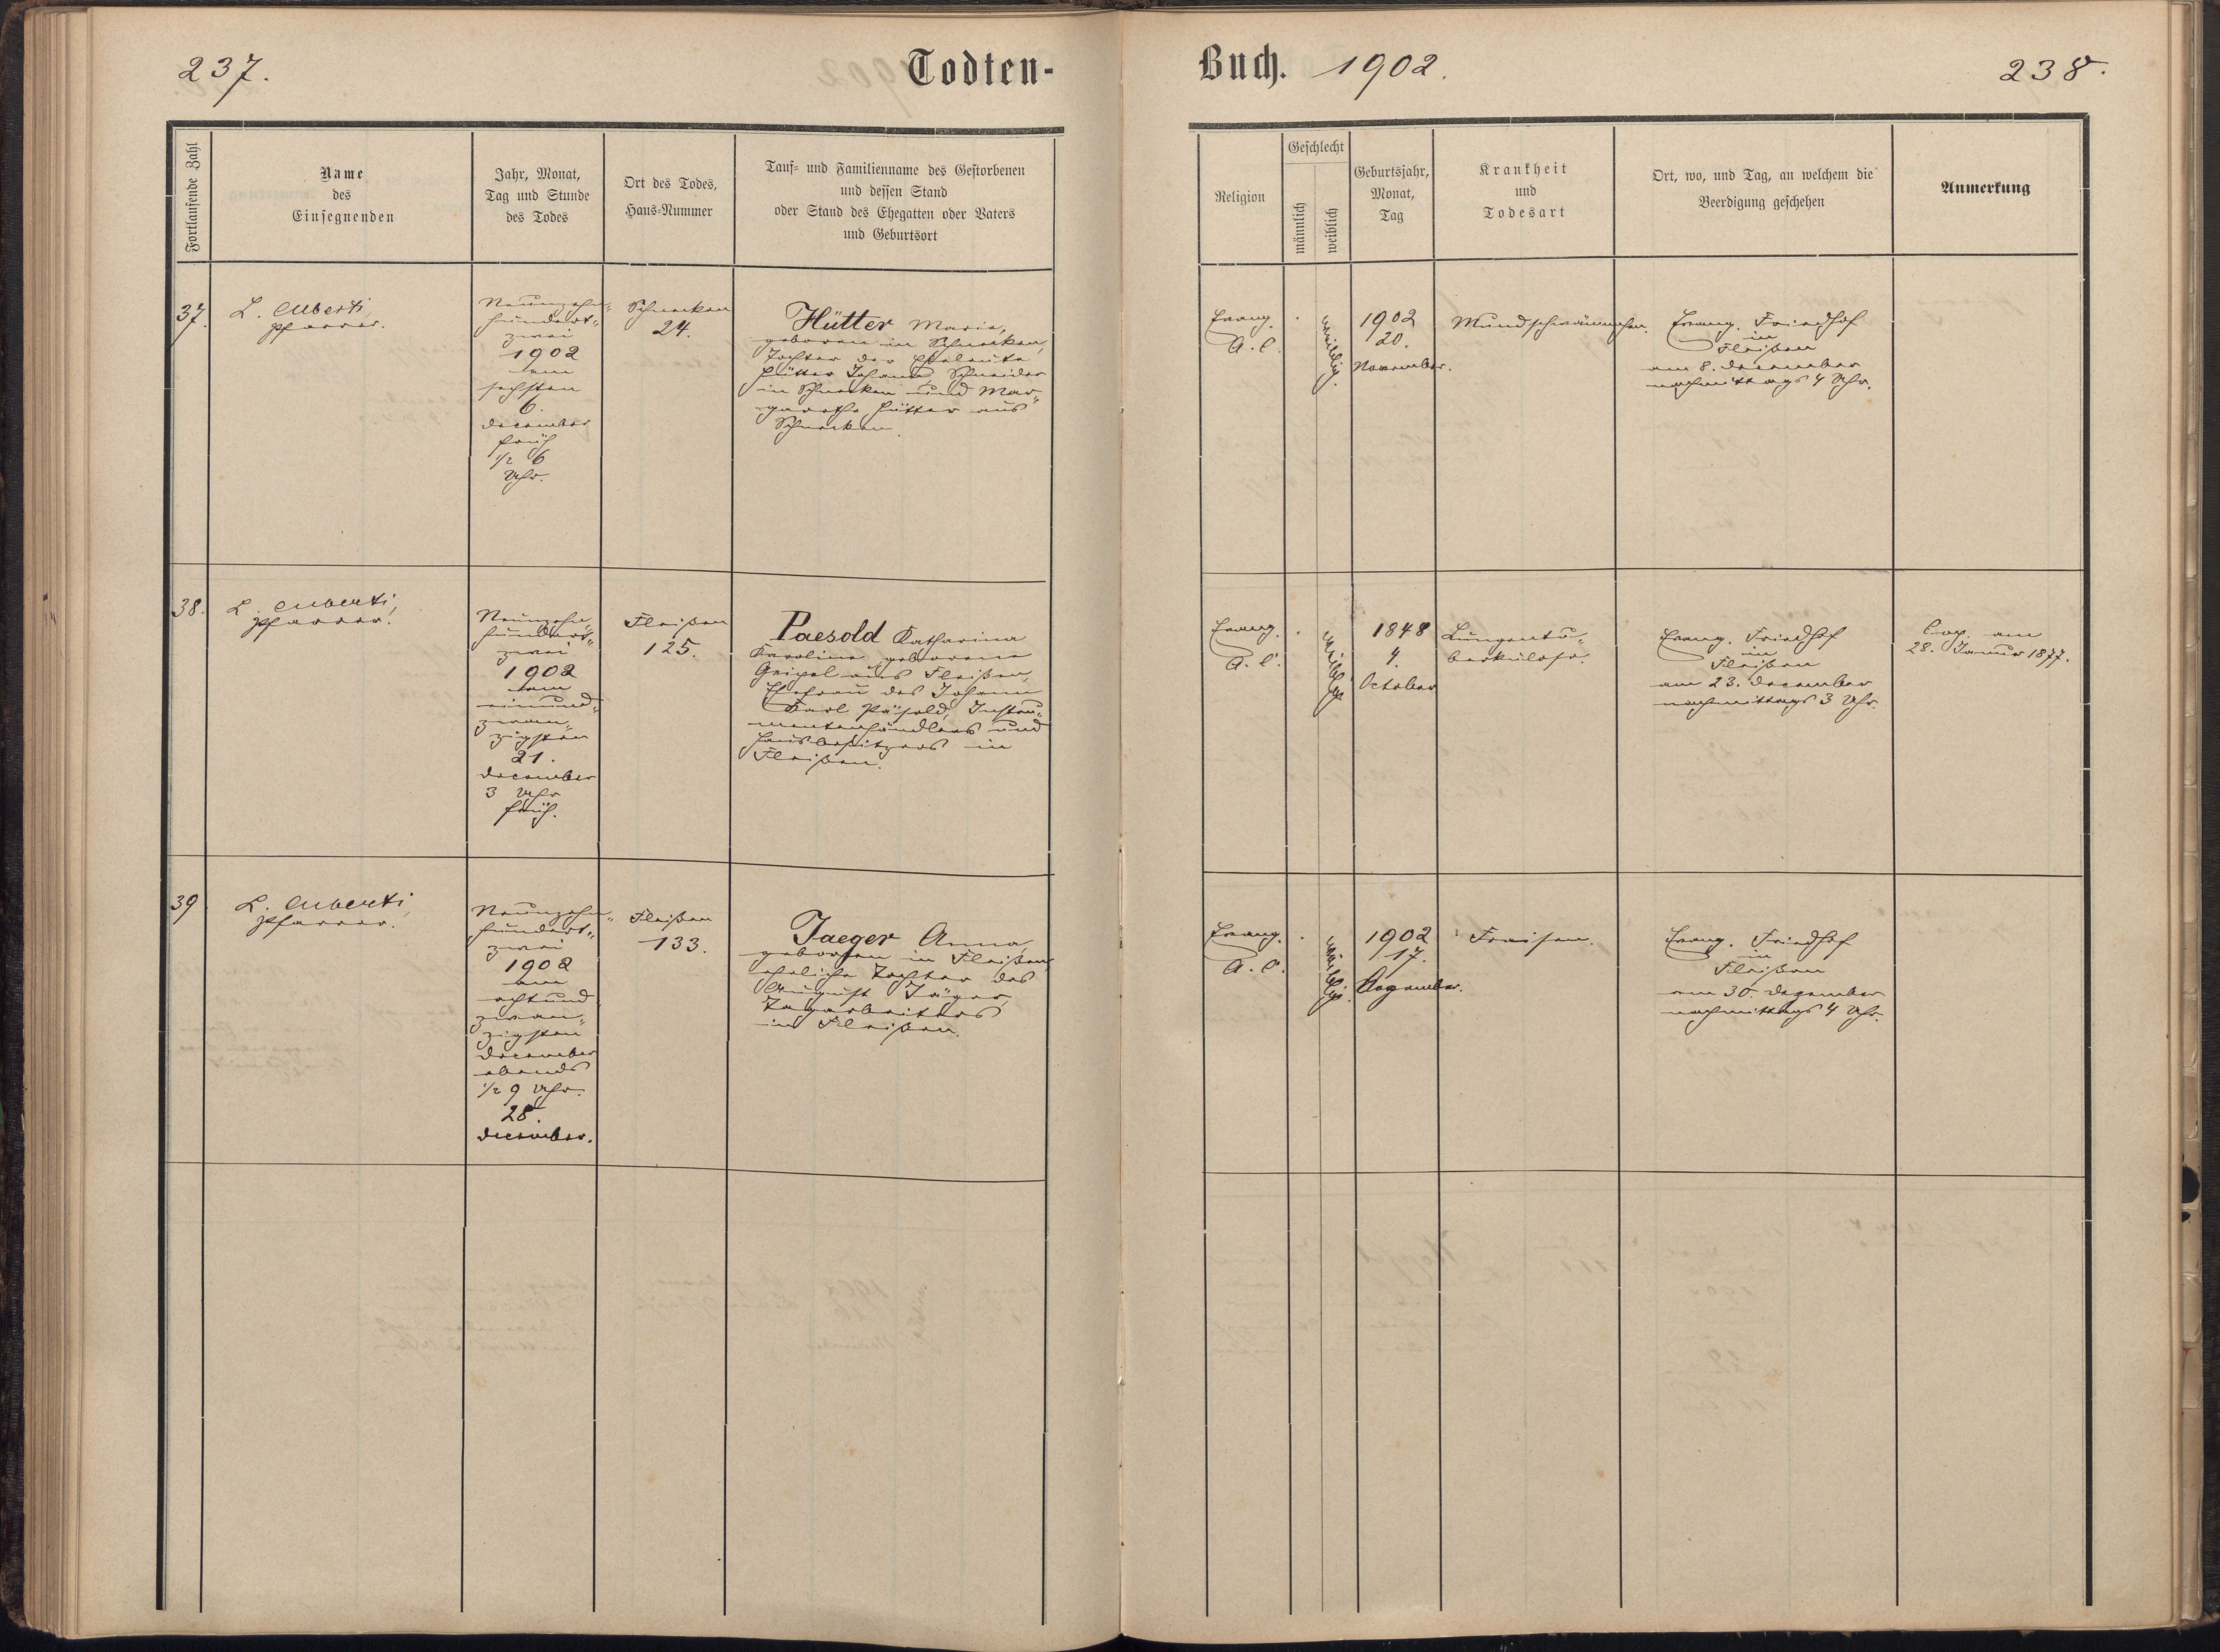 237.
Todten-
Buch. 1902.
238.
Fortlaufende Zahl
Name
des
Einsegnenden
Jahr, Monat,
Tag und Stunde
des Todes
Ort des Todes,
Haus-Nummer
Tauf- und Familienname des Gestorbenen
und dessen Stand
oder Stand des Ehegatten oder Vaters
und Geburtsort
Religion
Geschlecht
männlich
weiblich
Geburtsjahr,
Monat,
Tag
Krankheit
und
Todesart
Ort, wo, und Tag, an welchem die
Beerdigung geschehen
Anmerkung
37.
L. Alberti,
Pfarrer.
Neunzehn-
hundert-
zwei
1902
am
sechsten
6.
December
früh
1/2 6
Uhr.
Schnecken
24.
Hütter Maria,
geboren in Schnecken,
Tochter der Eheleute
Hütter Johann, Schneider
in Schnecken und Mar-
garetha Hütter aus
Schnecken.
Evang.
A. C.
weiblich.
1902
20.
November.
Mundschwämmchen.
Evang. Friedhof
in
Fleißen
am 8. December
nachmittags 4 Uhr.
38.
L. Alberti,
Pfarrer.
Neunzehn-
hundert-
zwei
1902
am
einund-
zwan-
zigsten
21.
December
3 Uhr
früh.
Fleißen
125.
Paesold Katharina
Karoline geborene
Geipel aus Fleißen,
Ehefrau des Johann
Karl Päsold, Instru-
mentenhändlers und
Hausbesitzers in
Fleißen.
Evang.
A. C.
weiblich
1848
4.
October
Lungentu-
berkulose.
Evang. Friedhof
in
Fleißen
am 23. December
nachmittags 3 Uhr.
Cop. am
28. Januar 1877.
39
L. Alberti,
Pfarrer.
Neunzehn-
hundert-
zwei
1902
am
achtund
zwan-
zigsten
December
abends
1/2 9 Uhr.
28.
December.
Fleißen
133.
Jaeger Anna,
geboren in Fleißen,
eheliche Tochter des
August Jäger,
Tagarbeiters
in Fleißen.
Evang.
A. C.
weiblich.
1902
17.
Dezember.
Fraisen.
Evang. Friedhof
in
Fleißen
am 30. Dezember
nachmittags 4 Uhr.